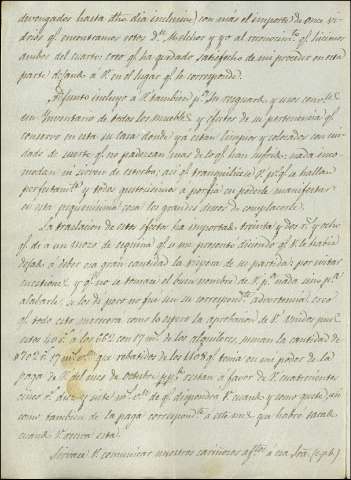 devengados hasta dho dia inclusive) con más el importe de once vi-
drios qe encontramos rotos Dn Melchor y yo al reconocimto qe hicimos
ambos del cuarto: creo qe ha quedado satisfecho de mi proceder en esta
parte dejando a V. en el lugar qe le corresponde.
Adjunto incluyo á V. tambien pa su resguardo y usos
un Inventario de todos los muebles y efectos de su pertenencia qe
conservo en esta su casa donde ya estan limpios y colocados con cui-
dado de suerte qe no padezcan mas de lo qe han sufrido: nada inco-
modan ni sirven de estorbo; asi qe tranquilicese V. pr qe se hallan
perfectamte y todos gustosimos á porfia en poderle manifestar
en esta pequeñísima cosa los grandes deseos de complacerle.
La traslacion de estos efectos ha importado treinta y dos rs y ocho
qe di a un mozo de esquina qe se me presentó diciendo qe V. le habia
dejado á deber esa gran cantidad la vispera de su partida; por evitar
cuestiones y qe no se tomase el buen nombre de V. pa nada sino pa
alabarle se los di pero no fué sin su correspondte advertencia; creo
qe todo esto merecerá como lo espero la aprobacion de V. Unidos pues
estos 40 rs á los 662 con 17 ms de los alquileres, suman la cantidad de
702 rs 17 ms que rebatidos de los 1108 qe tenia en mi poder de la
paga de V. del mes de octubre ppdo restan á favor de V. cuatrocientos
cinco rs diez y siete ms de qe dispondrá V. cuando y como guste, asi
como tambien de la paga correspondte á este mes que habré sacado
cuando V. reciva esta.
Sirvase V. comunicar nuestros cariñosos afectos á esa Sra. (c.p.b.)